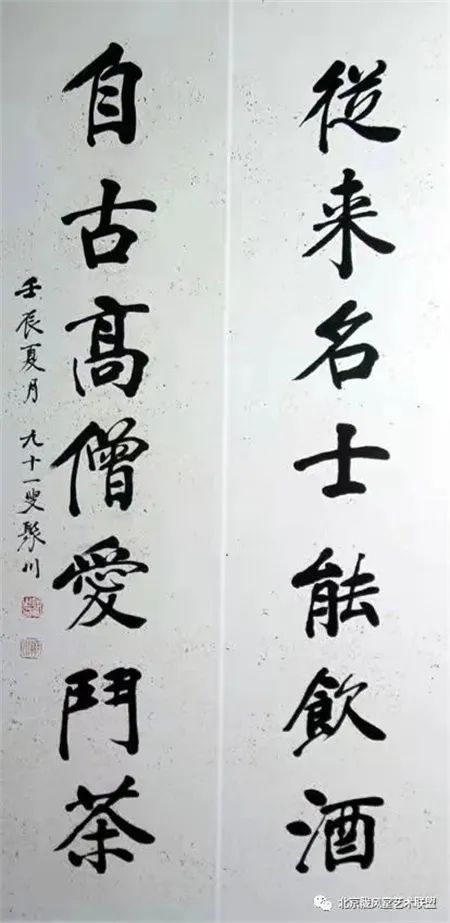 從来名士能飲酒
自古高僧愛鬥茶
壬辰夏月 九十一叟聚川
北京陇风堂艺术联盟